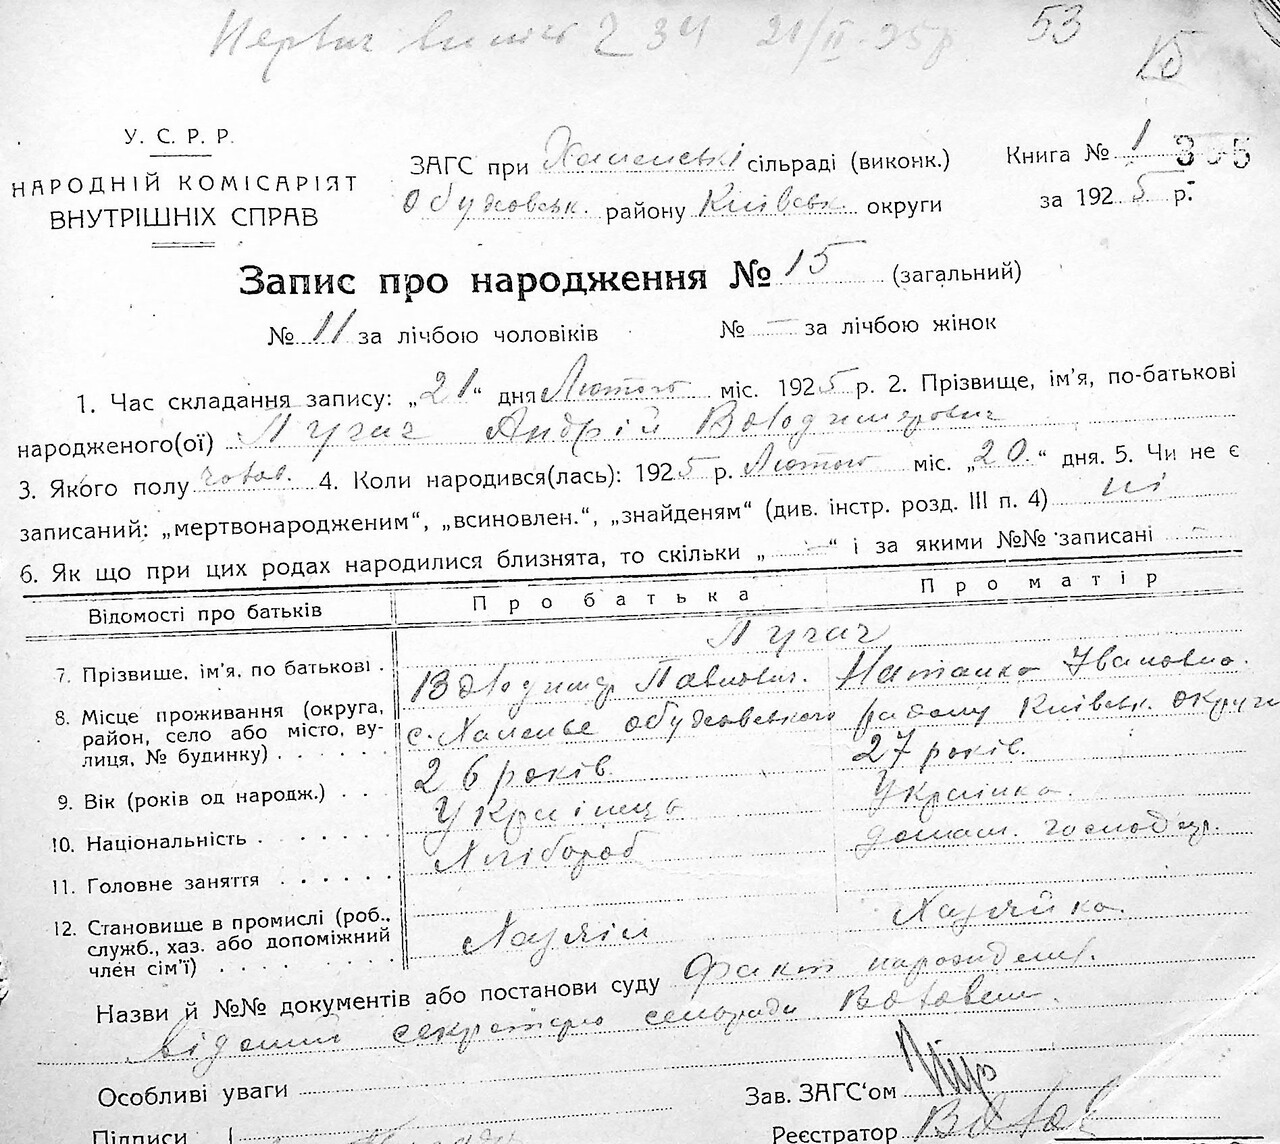 53
У. С. Р. Р.
НАРОДНІЙ КОМІСАРІЯТ
ВНУТРІШНІХ СПРАВ
ЗАГС при сільраді (виконк.)
Обуховськ. району Київськ. округи
Книга № 1
за 1925 р.
Запис про народження № 15 (загальний)
№ 11 за лічбою чоловіків № — за лічбою жінок
1. Час складання запису: „21“ дня Лютого міс. 1925 р. 2. Прізвище, ім’я, по-батькові
народженого(ої) Пугач Андрій Володимирович
3. Якого полу чолов. 4. Коли народився(лась): 1925 р. Лютого міс. „20.“ дня. 5. Чи не є
записаний: „мертвонародженим“, „всиновлен.“, „знайденям“ (див. інстр. розд. III п. 4) ні
6. Як що при цих родах народилися близнята, то скільки „—“ і за якими №№ записані —
Відомості про батьків Про батька Про матір
Пугач
7. Прізвище, ім’я, по батькові . Володимир Павлович. Наталка Івановна.
8. Місце проживання (округа, район, село або місто, вулиця, № будинку) . . . . с. Обуховського району Київськ. округи
9. Вік (років од народж.) . . . 26 років. 27 років.
10. Національність . . . . . . Українець Українка.
11. Головне заняття . . . . . . Хлібороб домаш. господар.
12. Становище в промислі (роб., служб., хаз. або допоміжний член сім’ї) . . . . . . . . Хазяїн Хазяйка.
Назви й №№ документів або постанови суду Факт народженн.
відомий секретарю сельради
Особливі уваги
Зав. ЗАГС‘ом
Підписи
Реєстратор